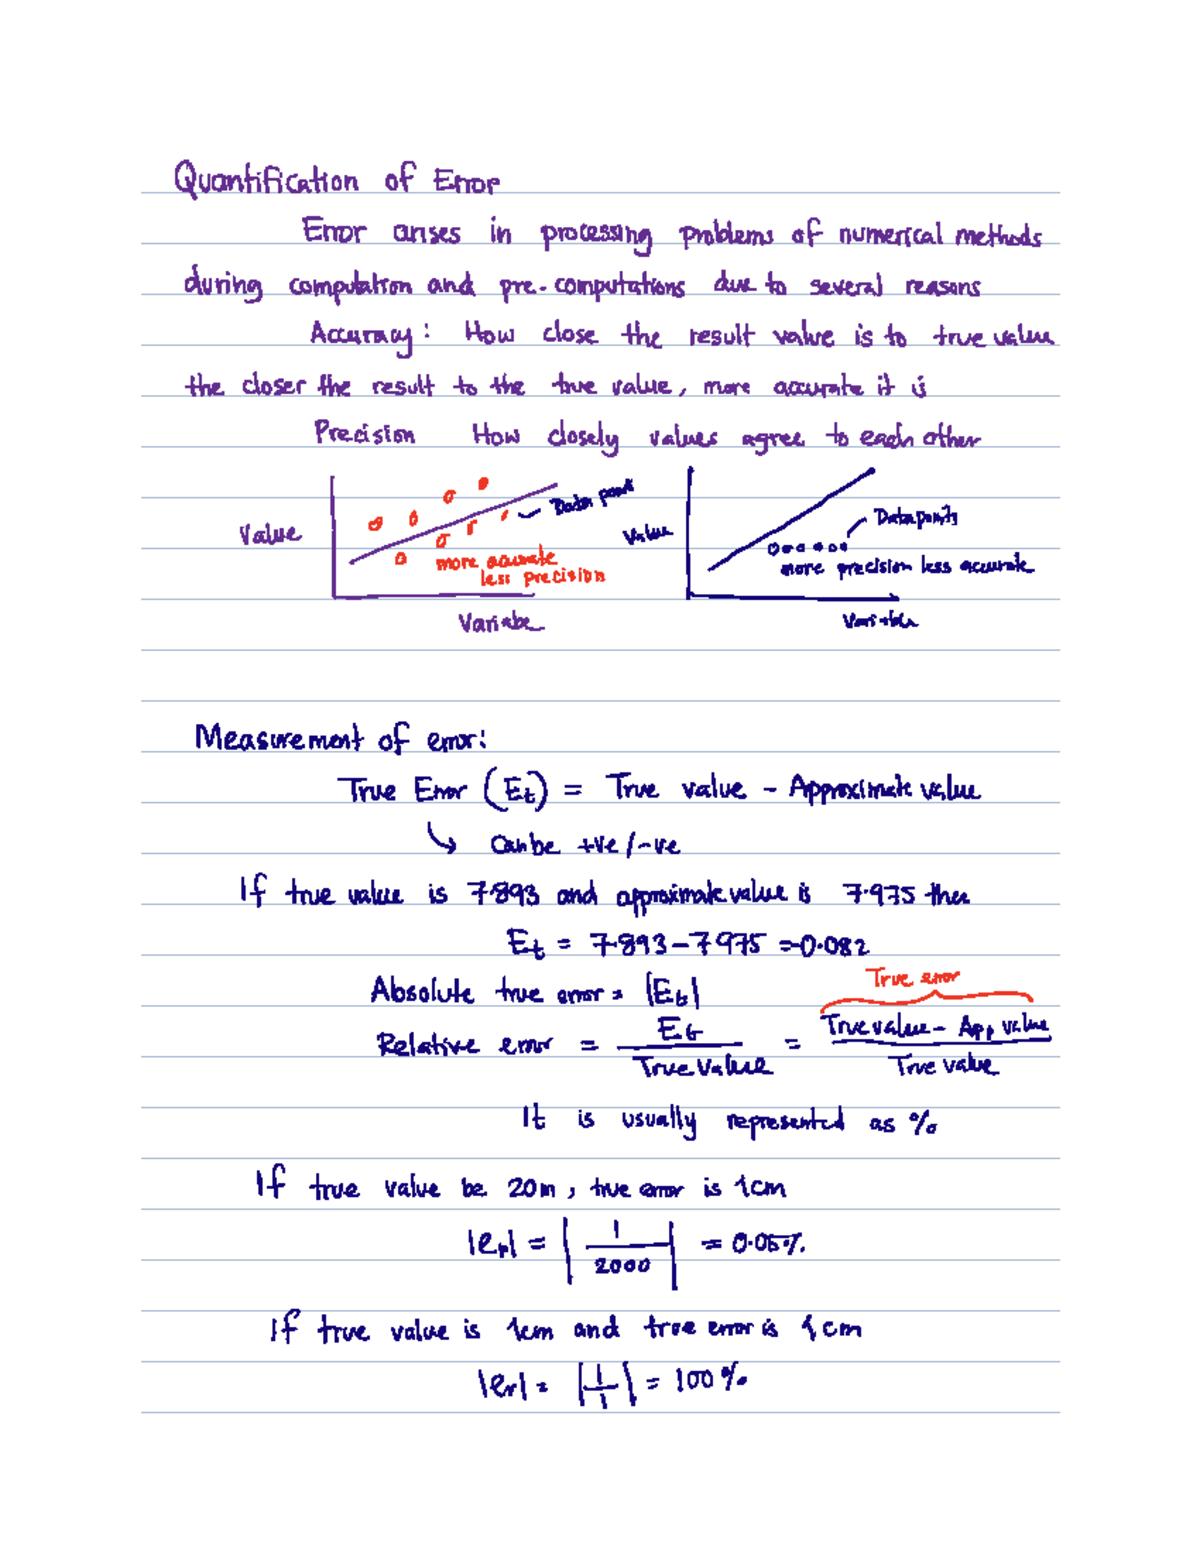 Quantification of Error
Error arises in processing problems of numerical methods
during computation and pre-computations due to several reasons
Accuracy: How close the result value is to true value
the closer the result to the true value, more accurate it is
Precision How closely values agree to each other
Value
Data point
more accurate
less precision
Variabe
Value
Data points
more precision less accurate
Variable
Measurement of error:
True Error (Et) = True value - Approximate value
↳ Can be +ve/-ve
If true value is 7.893 and approximate value is 7.975 then
Et = 7.893-7.975 =-0.082
Absolute true error = |Et|
True error
Relative error = Et / True Value = True value - App value / True value
It is usually represented as %
If true value be 20m, true error is 1cm
|er| = |1/2000| = 0.05%
If true value is 1cm and true error is 1cm
|er| = |1/1| = 100%